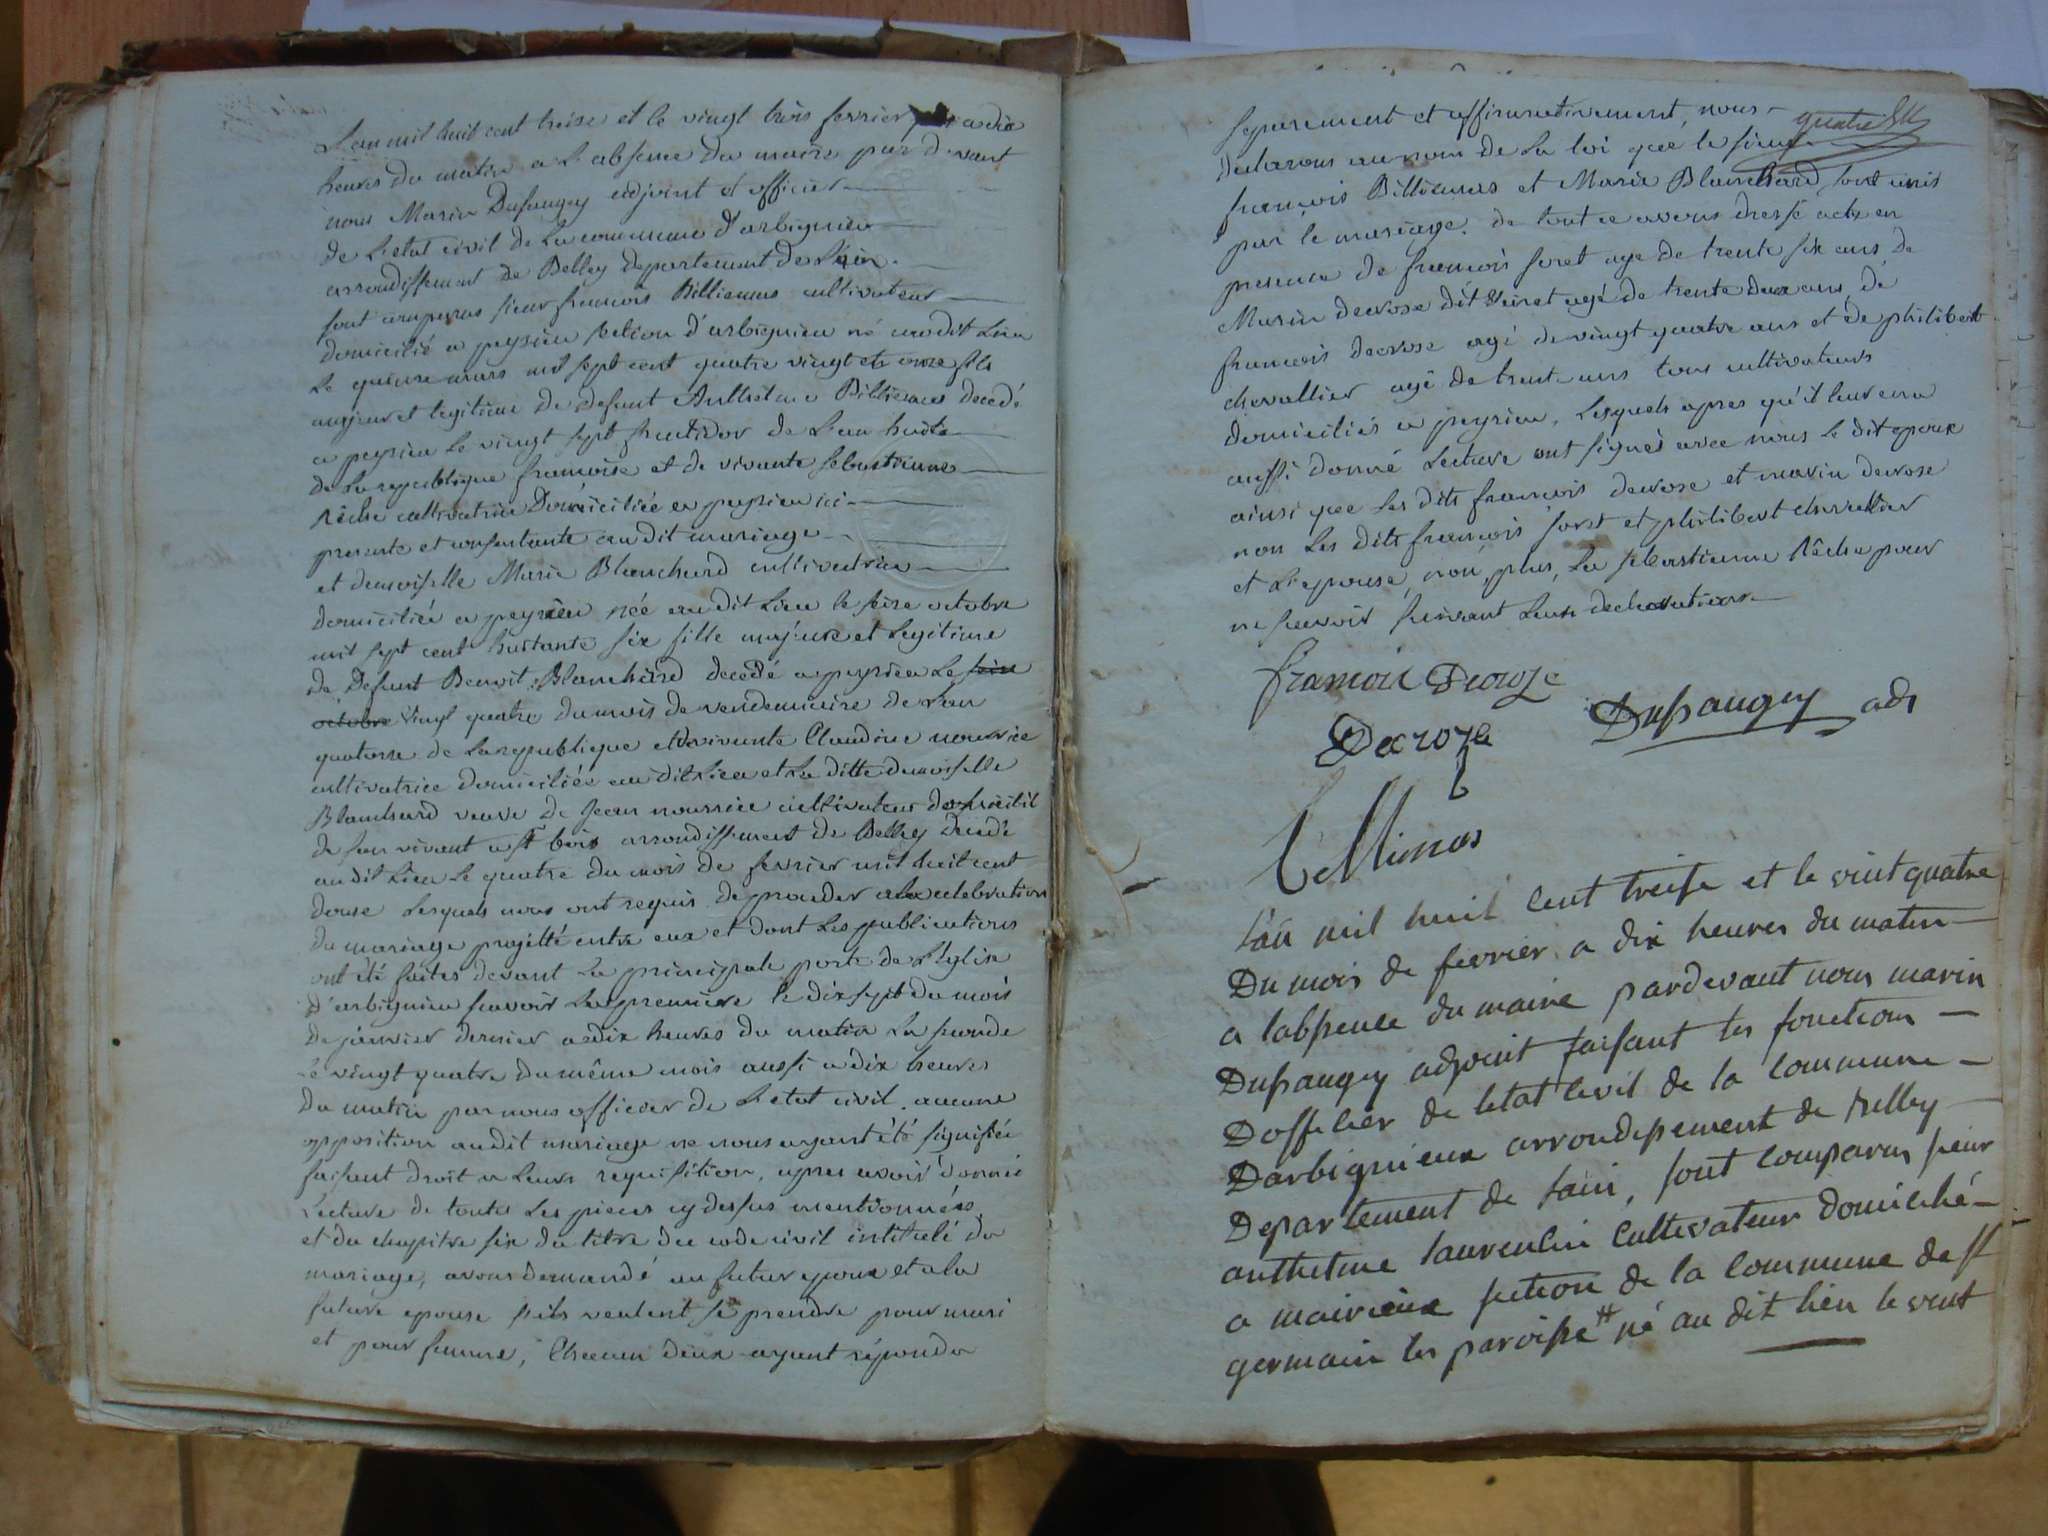 L'an mil huit cent treise et le vingt trois fevrier a dix
heures du matin a L'absence du maire par devant
nous Marin Dusaugey adjoint et officier
de L'etat civil de La commune d'arbignieu
arrondissement de Belley departement de L'ain
sont comparus sieur francois Billiemas cultivateur
domicilié a peyrieu section d'arbignieu né au dit Lieu
Le quinse mars mil sept cent quatre vingt et onze fils
majeur et legitime de defunt Anthelme Billiemas decedé
a peyrieu Le vingt sept fructidor de L'an huite
de La republique francoise et de vivante sebastienne
Rêche cultivatrice Domiciliée a peyrieu ici
presente et consentante au dit mariage
et demoiselle Marie Blanchard cultivatrice
domiciliée a peyrieu née au dit Lieu le seise octobre
mil sept cent huitante six fille majeure et Legitime
de Defunt Benoit Blanchard decedé a peyrieu Le seise
octobre vingt quatre du mois de vendemiaire de L'an
quatorse de La republique et de vivante Claudine nourrice
cultivatrice domiciliée au dit Lieu et La ditte demoiselle
Blanchard veuve de Jean nourrice cultivateur domicilié
de son vivant a st bois arrondissement de Belley decedé
au dit Lieu Le quatre du mois de fevrier mil huit cent
douse Lesquels nous ont requis de proceder a La celebration
du mariage projetté entre eux et dont Les publications
ont été faites devant La principale porte de L'eglise
d'arbignieu savoir La premiere le dix sept du mois
de janvier dernier a dix heures du matin La seconde
le vingt quatre du même mois aussi a dix heures
du matin par nous officier de L'etat civil. aucune
opposition au dit mariage ne nous ayant été signifiée
faisant droit a Leurs requisition, apres avoir donné
Lecture de toutes Les pieces cy dessus mentionnées
et du chapitre six du titre du code civil intitulé du
mariage, avons demandé au futur epoux et a la
future epouse s'ils veulent se prendre pour mari
et pour femme, Chacun d'eux ayant répondu
separement et affirmativement, nous
quatre
declarons au nom de La loi que le sieur
francois Billiemas et Marie Blanchard sont unis
par le mariage. de tout ce avons dressé acte en
presence de francois foret agé de trente six ans, de
Marin decrose dit agé de trente deux ans, de
francois decrose agé de vingt quatre ans et de philibert
chevallier agé de trente ans tous cultivateurs
domiciliés a peyrieu, Lesquels apres qu'il leur en a
aussi donné Lecture ont signés avec nous Le dit epoux
ainsi que Les dits francois decrose et marin decrose
non Les dits francois foret et philibert chevallier
et L'epouse, non plus, La sebastienne Rêche pour
ne savoir suivant Leurs declarations
francois Decroze
Dusaugey adj
Decroze
billiemas
L'an mil huit cent treise et le vint quatre
Du mois de fevrier a dix heures du matin
a labsence du maire pardevant nous marin
Dusaugey adjoint faisant les fonctions
Dofficier de letat civil de la commune
Darbignieux arrondissement de belley
Departement de lain, sont comparus sieur
anthelme laurencin cultivateur domicilié
a mairieux section de la commune de st
germain les paroisse # né au dit lieu le vint